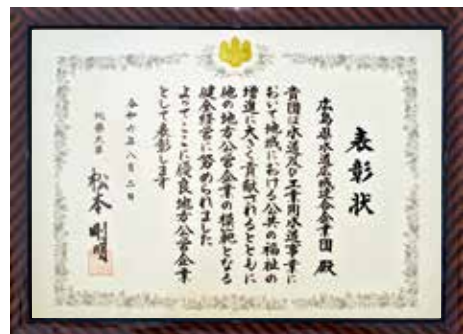 表彰状
広島県水道広域連合企業団 殿
貴団は水道及び工業用水道事業に
おいて地域における公共の福祉の
増進に大きく貢献されるとともに
他の地方公営企業の模範となる
健全経営に努められました
よってここに優良地方公営企業
として表彰します
令和六年八月二日
総務大臣 松本剛明